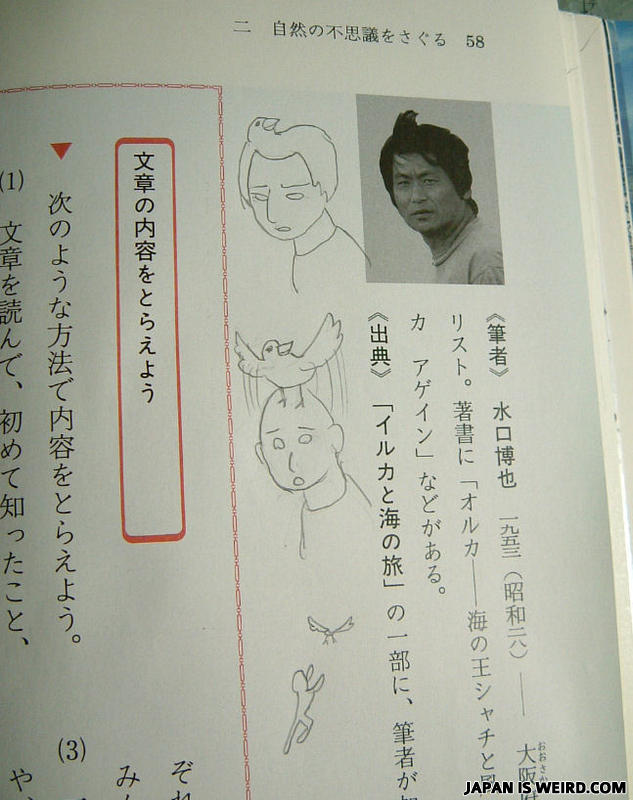 二 自然の不思議をさぐる 58
《筆者》 水口博也 一九五三（昭和二八）—— 大阪
おおさか
リスト。著書に「オルカ——海の王シャチと
カ アゲイン」などがある。
《出典》 「イルカと海の旅」の一部に、筆者が
文章の内容をとらえよう
▼ 次のような方法で内容をとらえよう。
(1) 文章を読んで、初めて知ったこと、
ぞれ
み
(3)
や
JAPAN IS WEIRD.COM